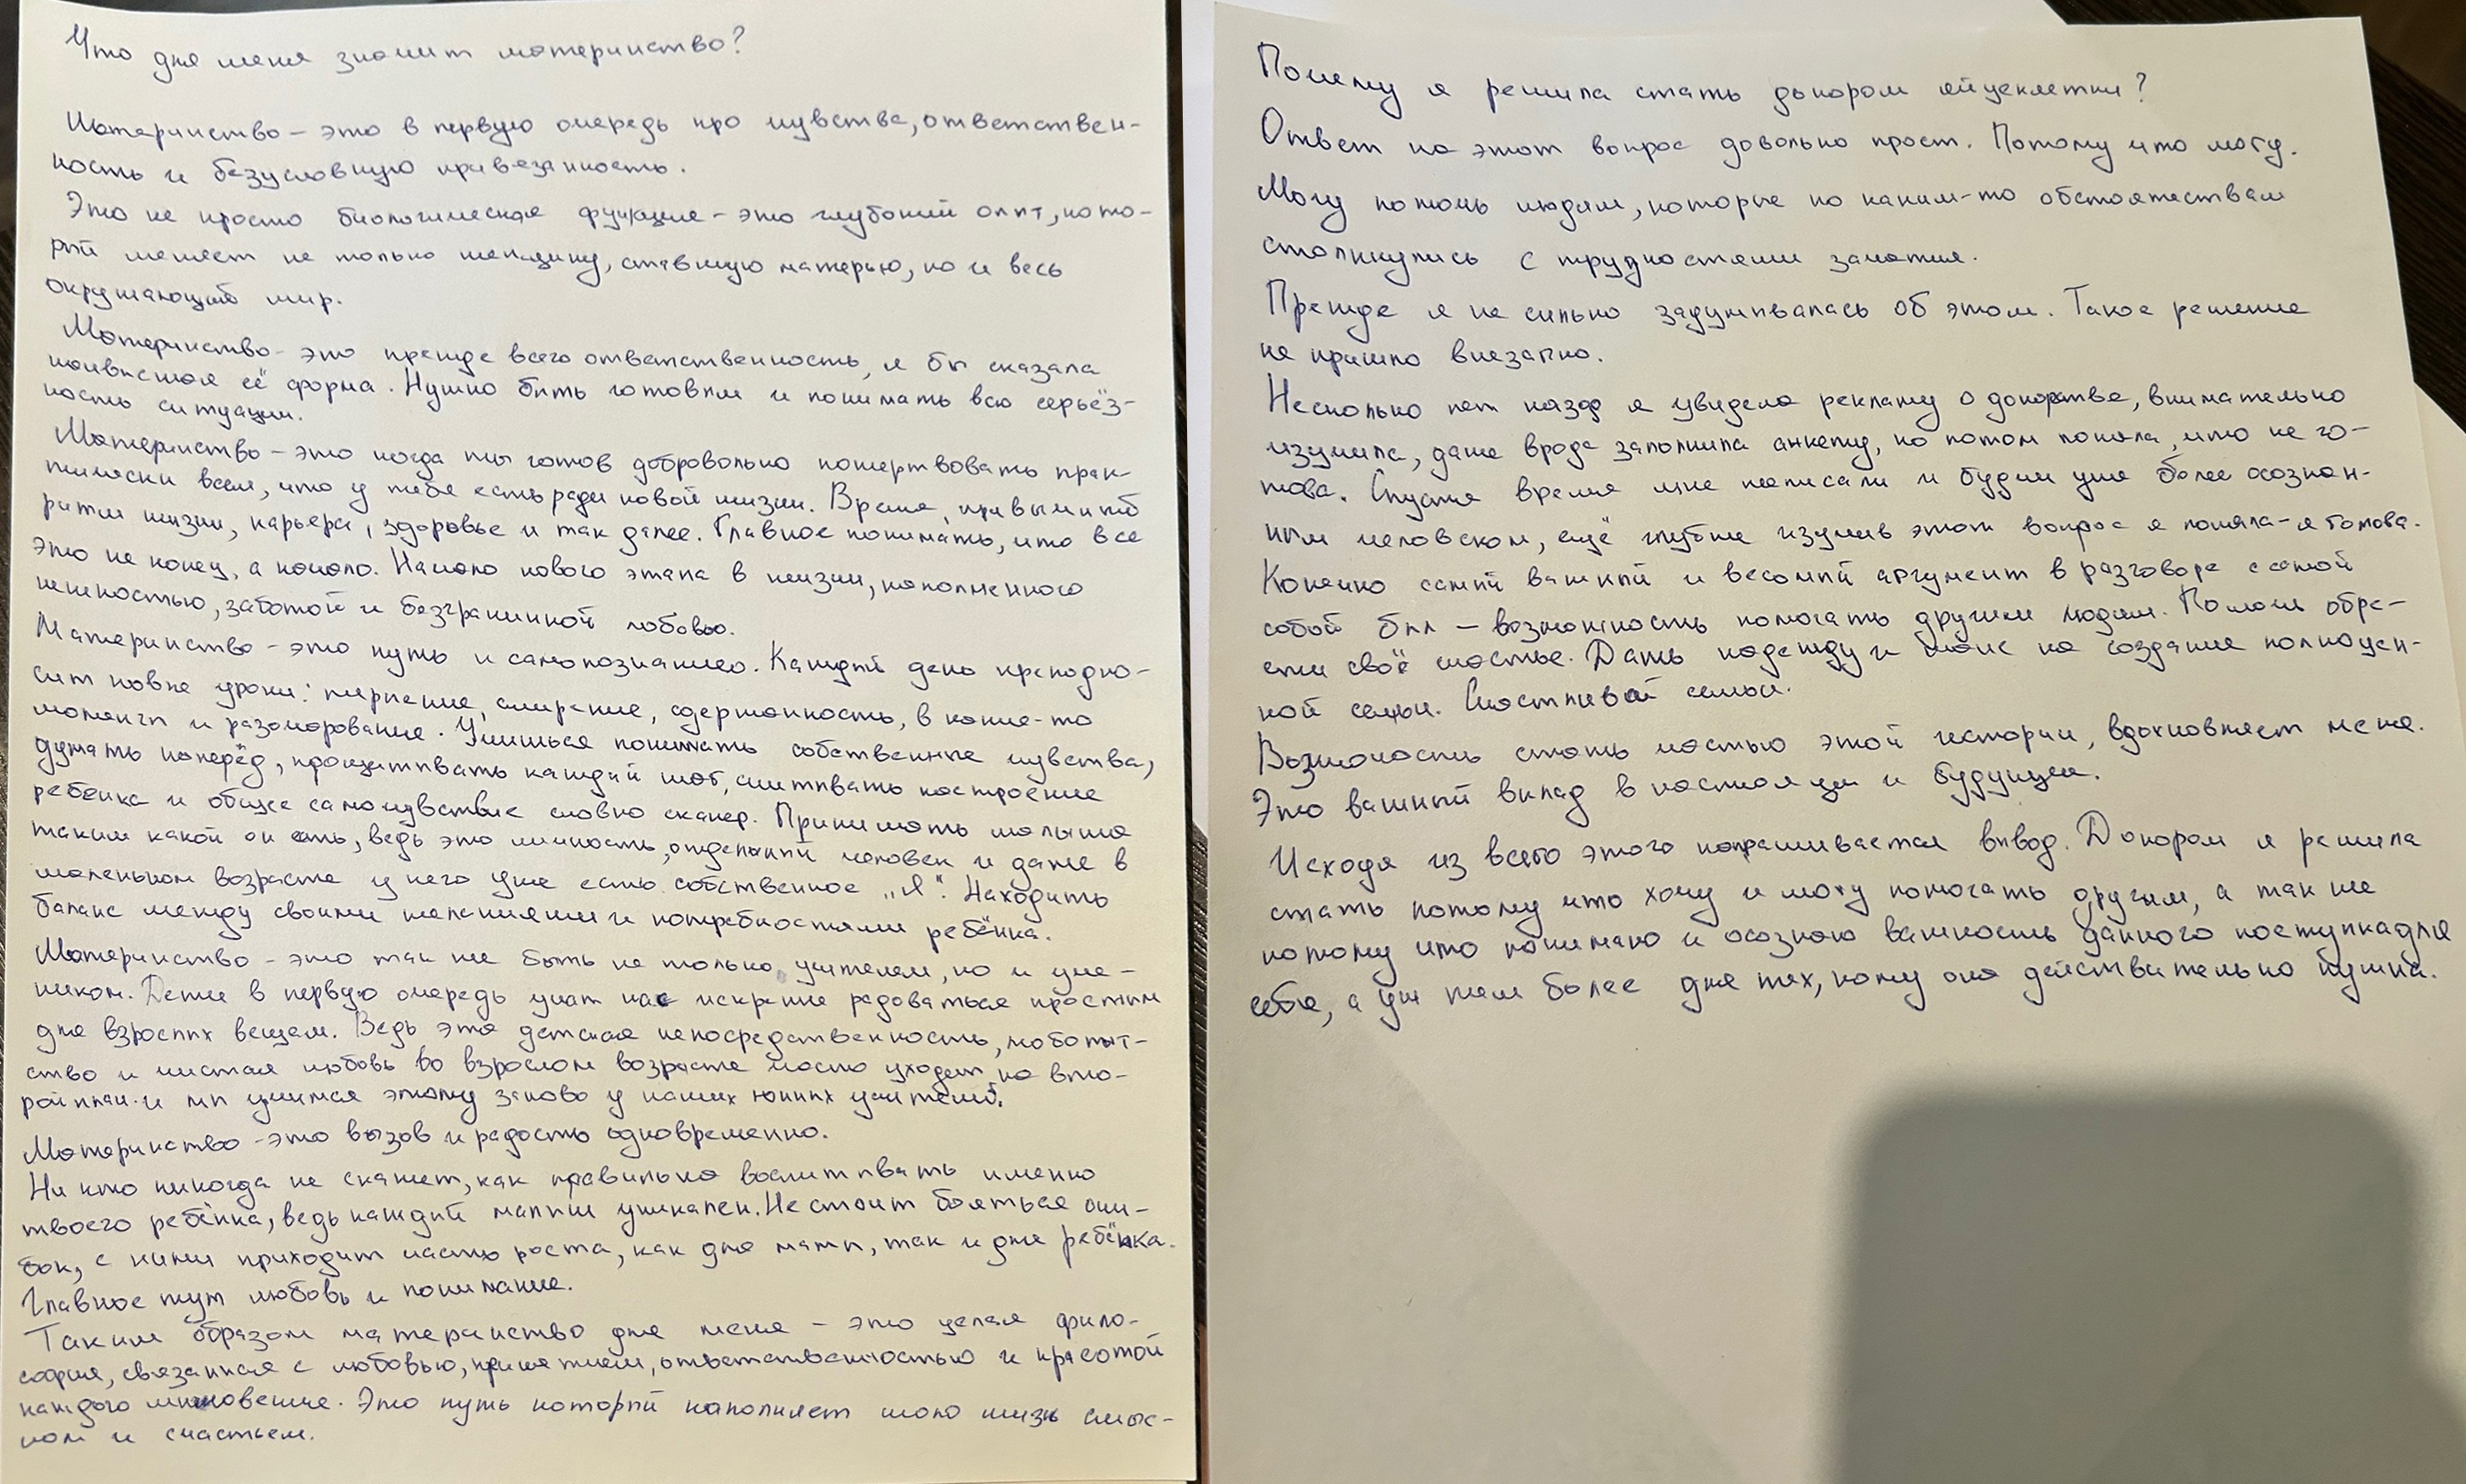 Что для меня значит материнство?
Материнство – это в первую очередь про чувства, ответствен-
ность и безусловную привязанность.
Это не просто биологическая функция – это глубокий опыт, кото-
рый меняет не только женщину, ставшую матерью, но и весь
окружающий мир.
Материнство – это прежде всего ответственность, я бы сказала
наивысшая её форма. Нужно быть готовым и понимать всю серьёз-
ность ситуации.
Материнство – это когда ты готов добровольно пожертвовать прак-
тически всем, что у тебя есть ради новой жизни. Время, привычный
ритм жизни, карьера, здоровье и так далее. Главное понимать, что всё
это не конец, а начало. Начало нового этапа в жизни, наполненного
нежностью, заботой и безграничной любовью.
Материнство – это путь к самопознанию. Каждый день преподно-
сит новые уроки: терпение, смирение, сдержанность, в какие-то
моменты и разочарование. Учишься понимать собственные чувства,
думать наперёд, просчитывать каждый шаг, считывать настроение
ребёнка и общее самочувствие словно сканер. Принимать малыша
таким какой он есть, ведь это личность, отдельный человек и даже в
маленьком возрасте у него уже есть собственное „Я“. Находить
баланс между своими желаниями и потребностями ребёнка.
Материнство – это так же быть не только учителем, но и уче-
ником. Дети в первую очередь учат нас искренне радоваться простым
для взрослых вещам. Ведь эта детская непосредственность, любопыт-
ство и чистая любовь во взрослом возрасте часто уходят на вто-
рой план и мы учимся этому заново у наших юных учителей.
Материнство – это вызов и радость одновременно.
Ни кто никогда не скажет, как правильно воспитывать именно
твоего ребёнка, ведь каждый малыш уникален. Не стоит бояться оши-
бок, с ними приходит часть роста, как для мамы, так и для ребёнка.
Главное тут любовь и понимание.
Таким образом материнство для меня – это целая фило-
софия, связанная с любовью, принятием, ответственностью и красотой
каждого мгновения. Это путь который наполняет мою жизнь смыс-
лом и счастьем.
Почему я решила стать донором яйцеклетки?
Ответ на этот вопрос довольно прост. Потому что могу.
Могу помочь людям, которые по каким-то обстоятествам
столкнулись с трудностями зачатия.
Прежде я не сильно задумывалась об этом. Такое решение
не пришло внезапно.
Несколько лет назад я увидела рекламу о донорстве, внимательно
изучила, даже вроде заполнила анкету, но потом поняла, что не го-
това. Спустя время мне написали и будучи уже более осознан-
ным человеком, ещё глубже изучив этот вопрос я поняла – я готова.
Конечно самый важный и весомый аргумент в разговоре с самой
собой был – возможность помогать другим людям. Помочь обре-
сти своё счастье. Дать надежду и шанс на создание полноцен-
ной семьи. Счастливой семьи.
Возможность стать частью этой истории, вдохновляет меня.
Это важный вклад в настоящем и будущем.
Исходя из всего этого напрашивается вывод. Донором я решила
стать потому что хочу и могу помогать другим, а так же
потому что понимаю и осознаю важность данного поступка для
себя, а уж тем более для тех, кому она действительно нужна.